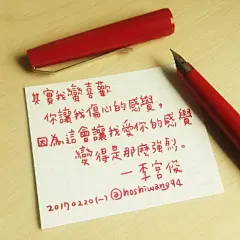 其實我蠻喜歡
你讓我傷心的感覺,
因為這會讓我愛你的感覺
變得是那麼強烈。
—李宮俊
20170220(一)@hoshiwang94